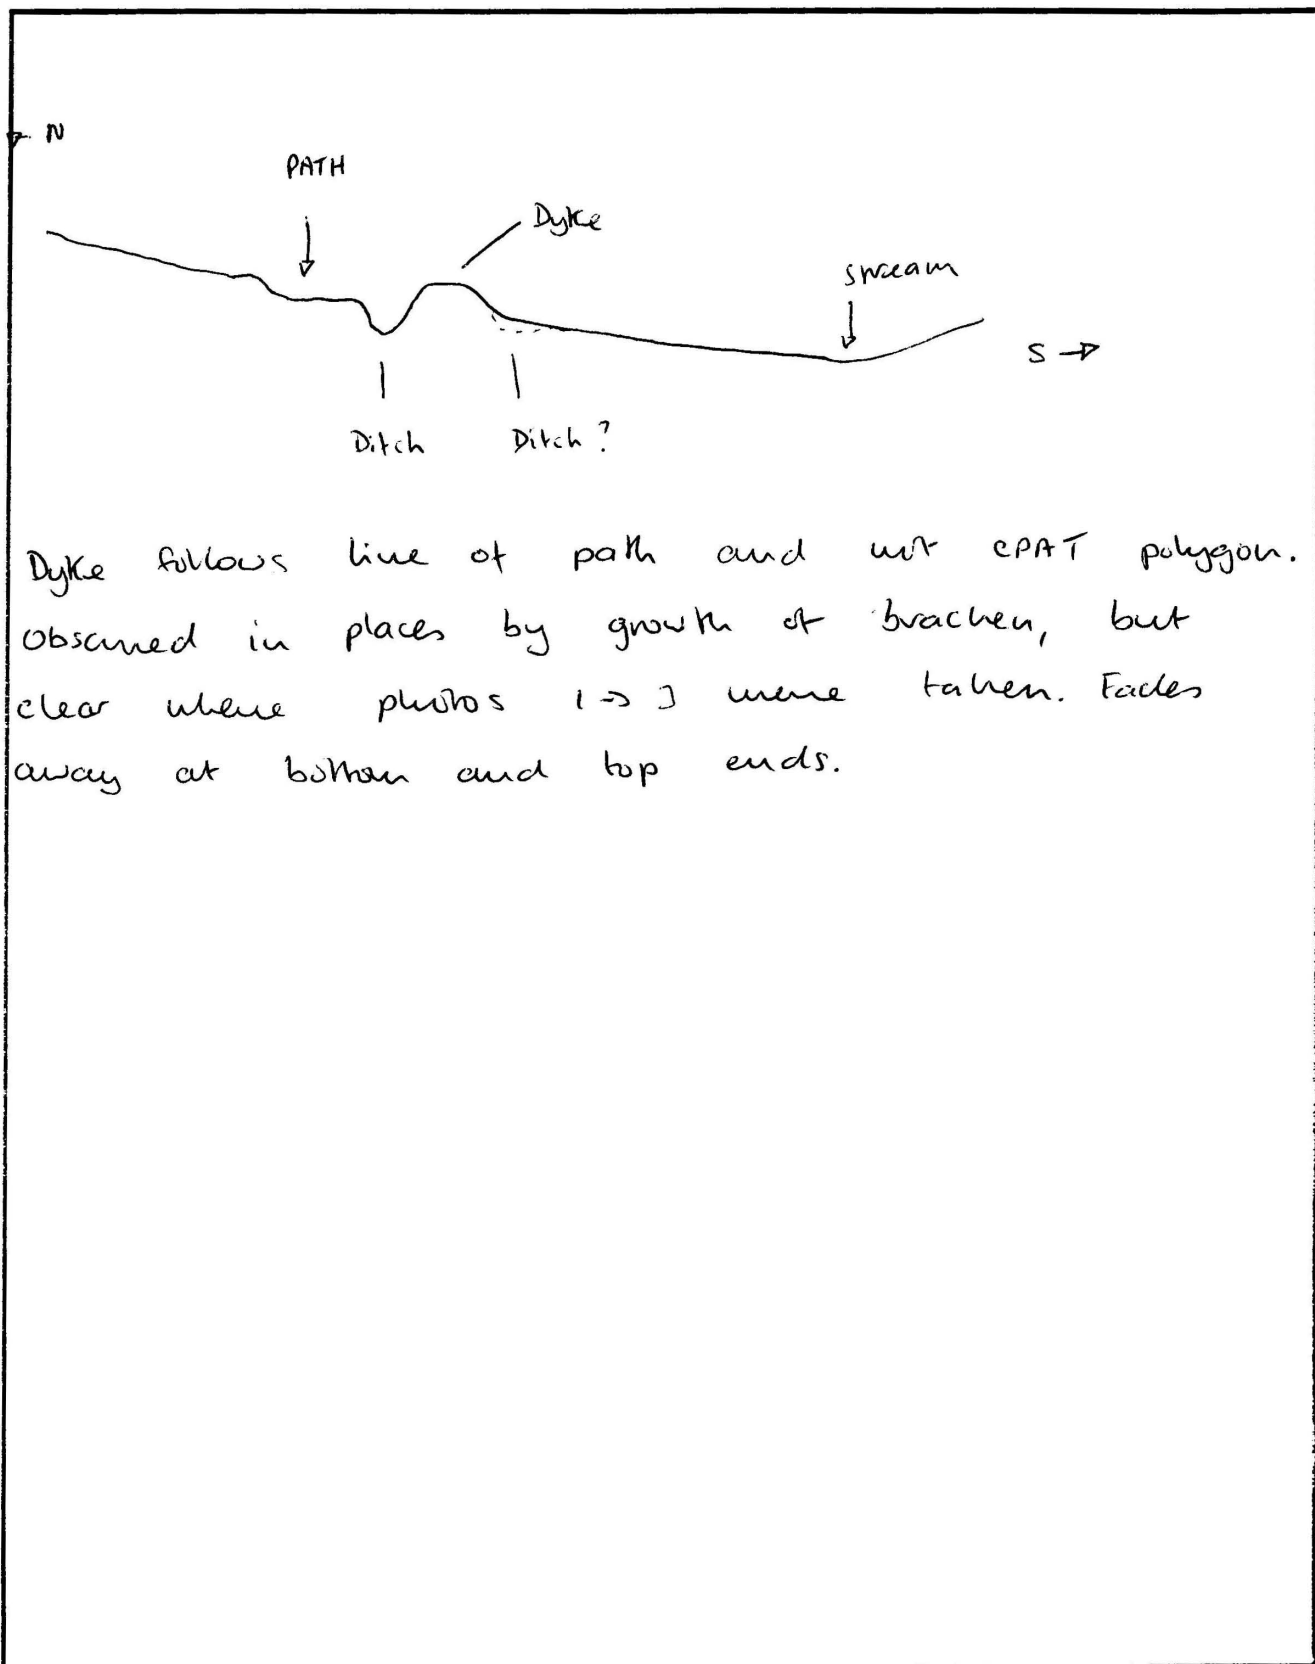 N
PATH
Dyke
stream
S →
Ditch
Ditch ?
Dyke follows line of path and not CPAT polygon.
Obscured in places by growth of bracken, but
clear where photos 1 → 3 were taken. Fades
away at bottom and top ends.